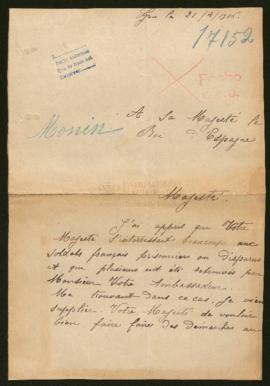 17152
Monin
A Sa Majesté le
Roi d'Espagne
Majesté.
J'ai appris que Votre
Majesté s'intéressait beaucoup aux
soldats français prisonniers ou disparus
et que plusieurs ont été retrouvés par
Monsieur Votre Ambassadeur.
Me trouvant dans ce cas, je viens
supplier Votre Majesté de vouloir
bien faire faire des démarches au